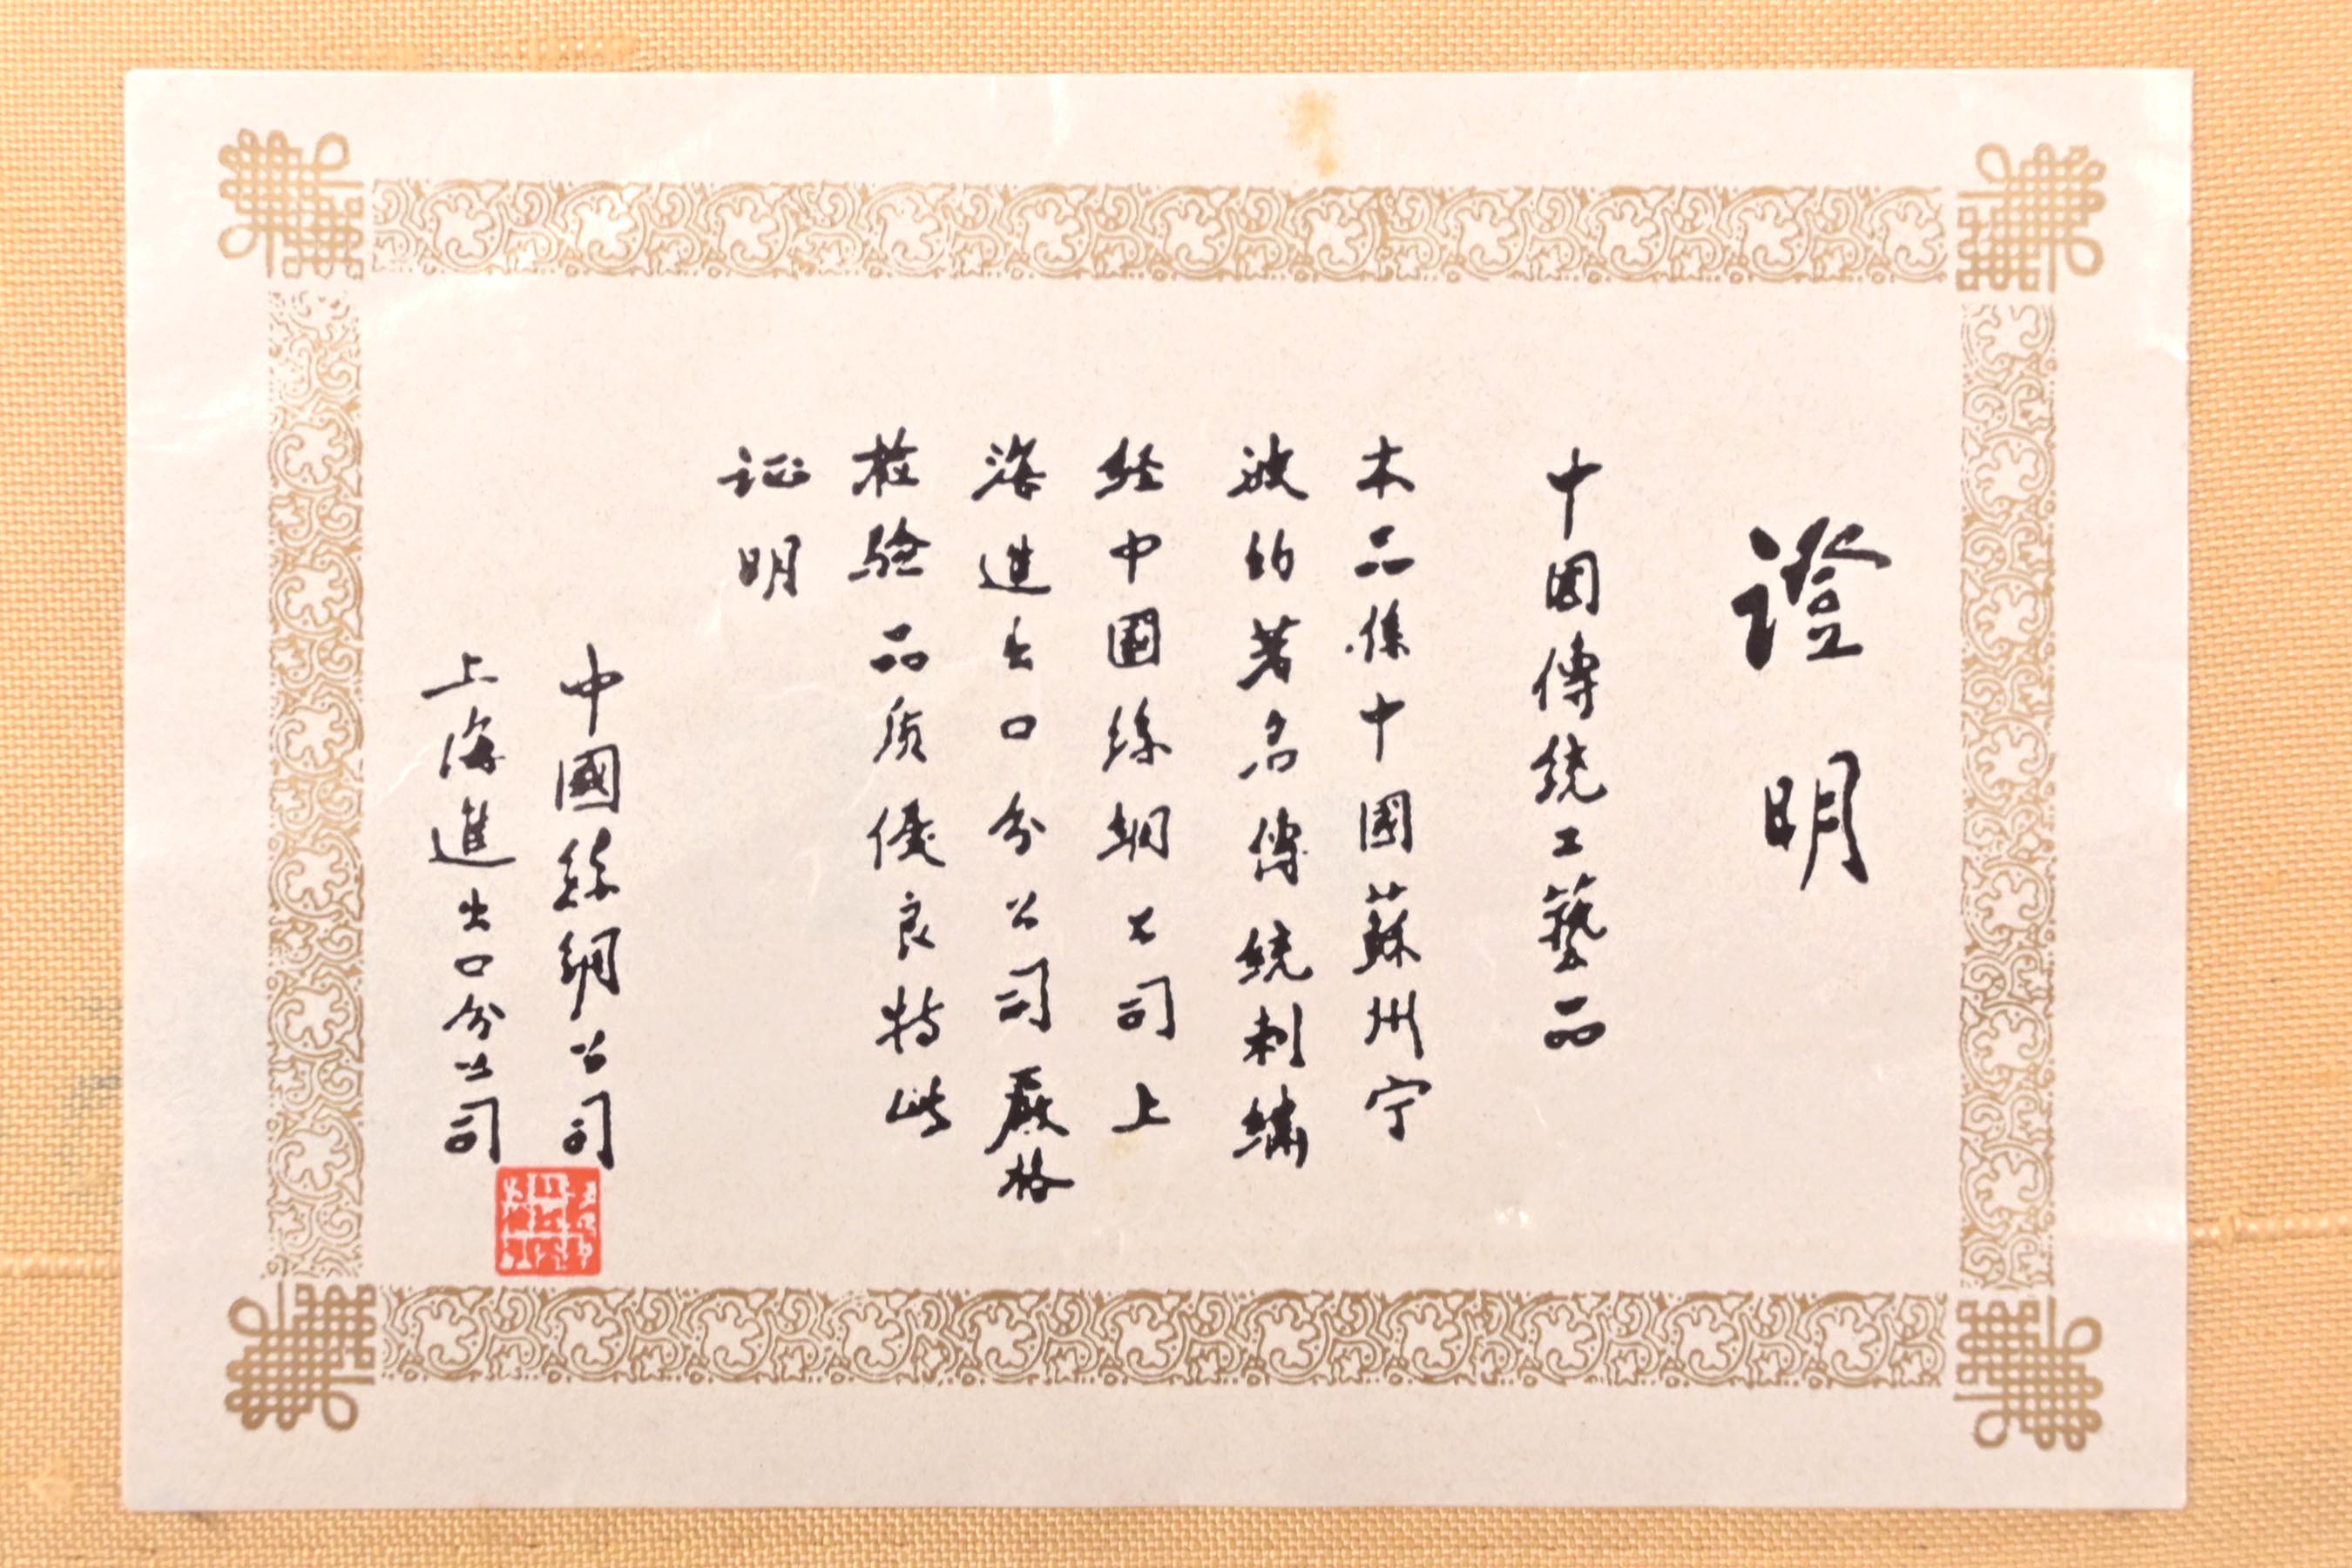 證明
中国傳统工藝品
本品係中國蘇州宁
波的著名傳統刺繡
经中國絲绸公司上
海进出口分公司嚴格
检验品质優良特此
证明
中國絲綢公司
上海進出口分公司